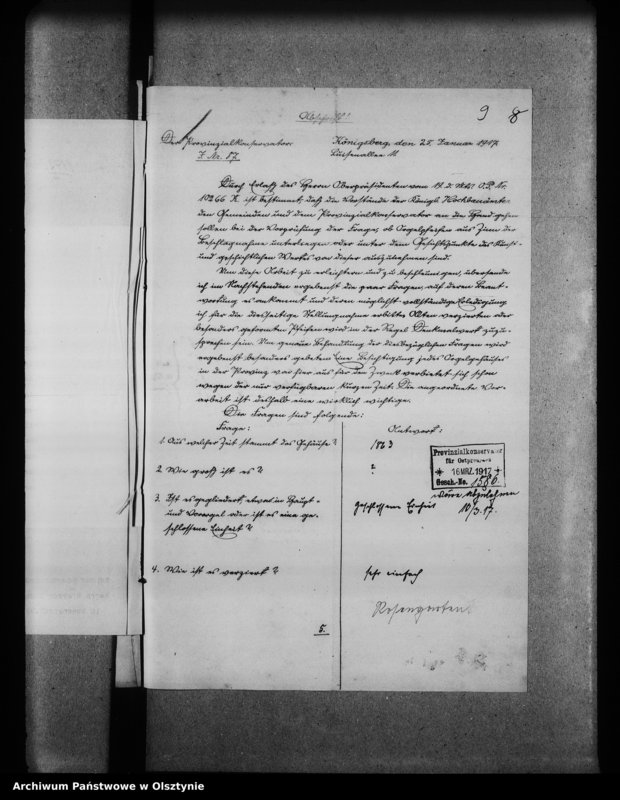 Abschrift!
9 8
Der Provinzialkonservator
J. Nr. 87
Königsberg, den 25. Januar 1917
Luisenallee
Durch Erlaß des Herrn Oberpräsidenten vom O.P. Nr.
10266 ist bestimmt, daß die Vorstände der Königl. Hochbauämter
den Gemeinden und dem Provinzialkonservator an die Hand gehen
sollen bei der Vorprüfung der Frage, ob Orgelpfeifen aus Zinn der
Beschlagnahme unterliegen oder unter dem Gesichtspunkte des Kunst-
und geschichtlichen Wertes von dieser auszunehmen sind.
Um diese Arbeit zu erleichtern und zu beschleunigen, übersende
ich im Nachstehenden ergebenst die paar Fragen, auf deren Beant-
wortung es ankommt und deren möglichst vollständige Erledigung
ich für die diesseitige Stellungnahme erbitte. Alten verzierten oder
besonders geformten Pfeifen wird in der Regel Denkmalwert zuzu-
sprechen sein. Um genaue Behandlung der diesbezüglichen Fragen wird
ergebenst besonders gebeten. Eine Besichtigung jedes Orgelgehäuses
in der Provinz von hier aus für den Zweck verbietet sich schon
wegen der nur verfügbaren kurzen Zeit. Die angeordnete Vor-
arbeit ist deshalb eine wirklich wichtige.
Die Fragen sind folgende:
Frage: Antwort:
1. Aus welcher Zeit stammt das Gehäuse? 1863
Provinzialkonservator
für Ostpreussen
16 MRZ. 1917
Gesch.-No. 1580
2. Wie groß ist es?
3. Ist es gegliedert, etwa in Haupt-
und Vororgel oder ist es eine ge-
schlossene Einheit? geschlossene Einheit
10/3.17.
4. Wie ist es verziert? sehr einfach
Rosengarten.
5.
Archiwum Państwowe w Olsztynie